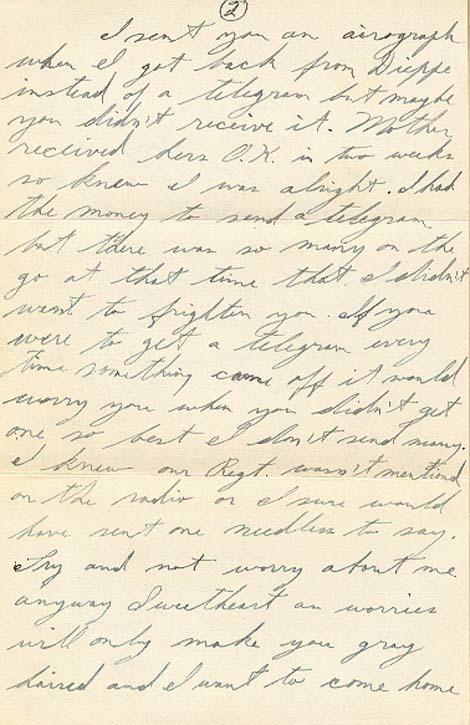 2
I sent you an airograph
when I got back from Dieppe
instead of a telegram but maybe
you didn't receive it. Mother
received hers O.K. in two weeks
so knew I was alright. I had
the money to send a telegram
but there was so many on the
go at that time that I didn't
want to frighten you. If you
were to get a telegram every
time something came off it would
worry you when you didn't get
one so best I don't send many.
I knew our Regt. wasn't mentioned
on the radio or I sure would
have sent one needless to say.
Try and not worry about me
anyway Sweetheart as worries
will only make you gray
haired and I want to come home